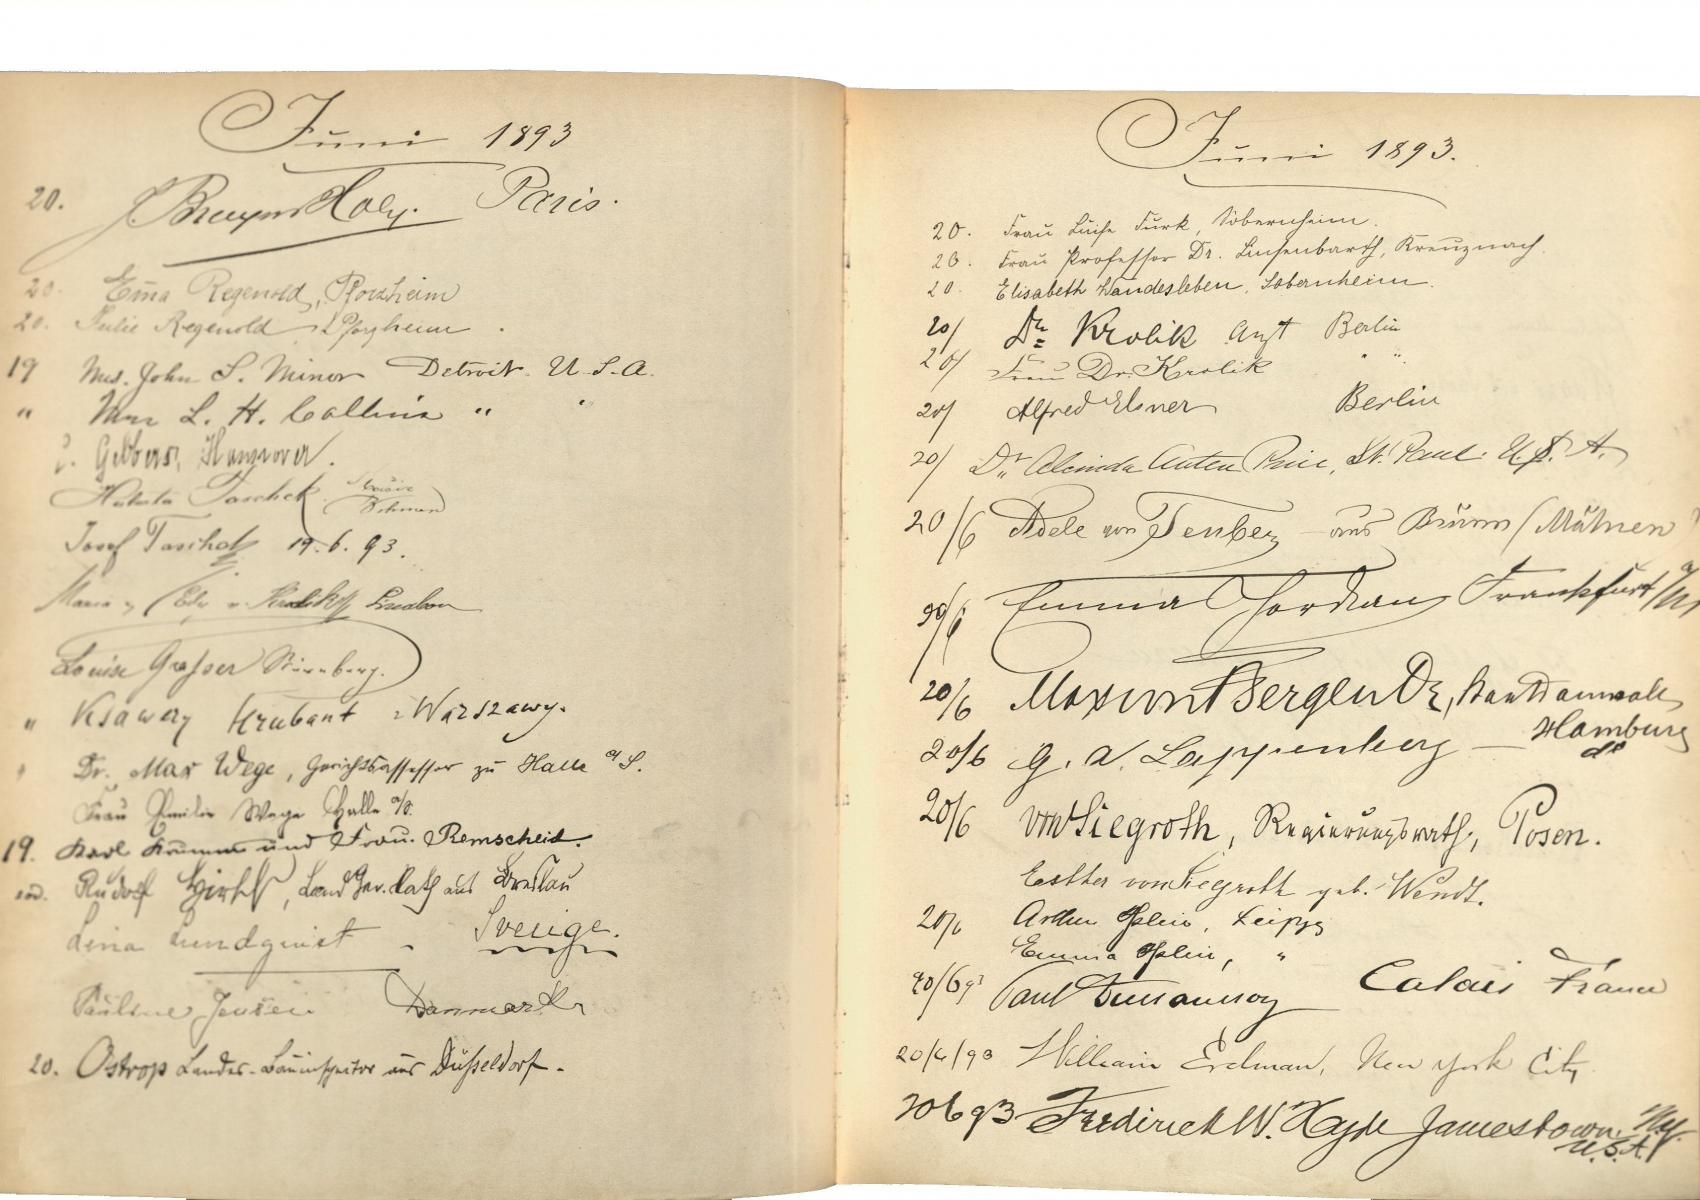 Juni 1893
20. Paris.
20. Ema Regenold, Pforzheim
20. Julie Regenold, Pforzheim
19 Mrs. John S. Minor Detroit U. S. A.
" L. H. Collins " "
Gebbers, Hannover.
Taschek
Josef Taschek 19.6.93.
Maria Lissabon
Louise Grasser Nürnberg.
" Ksawery Hrabant z Warszawy.
" Dr. Max Wege, Gerichtsassessor zu Halle a/S.
Frau Emilie Wege Halle a/S.
19. Karl Krumm und Frau. Remscheid.
Rudolf aus Breslau
Lina Lundquist - Sverige.
Pauline Jensen Danmark
20. Ostrop Landes-Bauinspector aus Düsseldorf.
Juni 1893.
20. Frau Luise Furk, Sobernheim.
20. Frau Professor Dr. Linsenbarth, Kreuznach.
20. Elisabeth Wandesleben, Sobernheim.
20/ Dr. Krolik Arzt Berlin
20/ Frau Dr. Krolik " "
20/ Alfred Elsner Berlin
20/ Dr. Auten St. Paul. U. S. A.
20/6 Adele von aus Brünn (Mähren)
20/6 Emma Jordan Frankfurt a/M
20/6 Bergen Dr, Staatsanwalt
Hamburg
20/6 G. A. Lappenberg — do
20/6 von Siegroth, Regierungsrath, Posen.
Esther von Siegroth geb. Wendt.
20/6 Arthur Leipzg
Emma "
20/6 93 Paul Calais France
20/6/93 William Erdman, New York City
20 6 93 Frederick W. Hyde Jamestown, N.Y.
U.S.A.